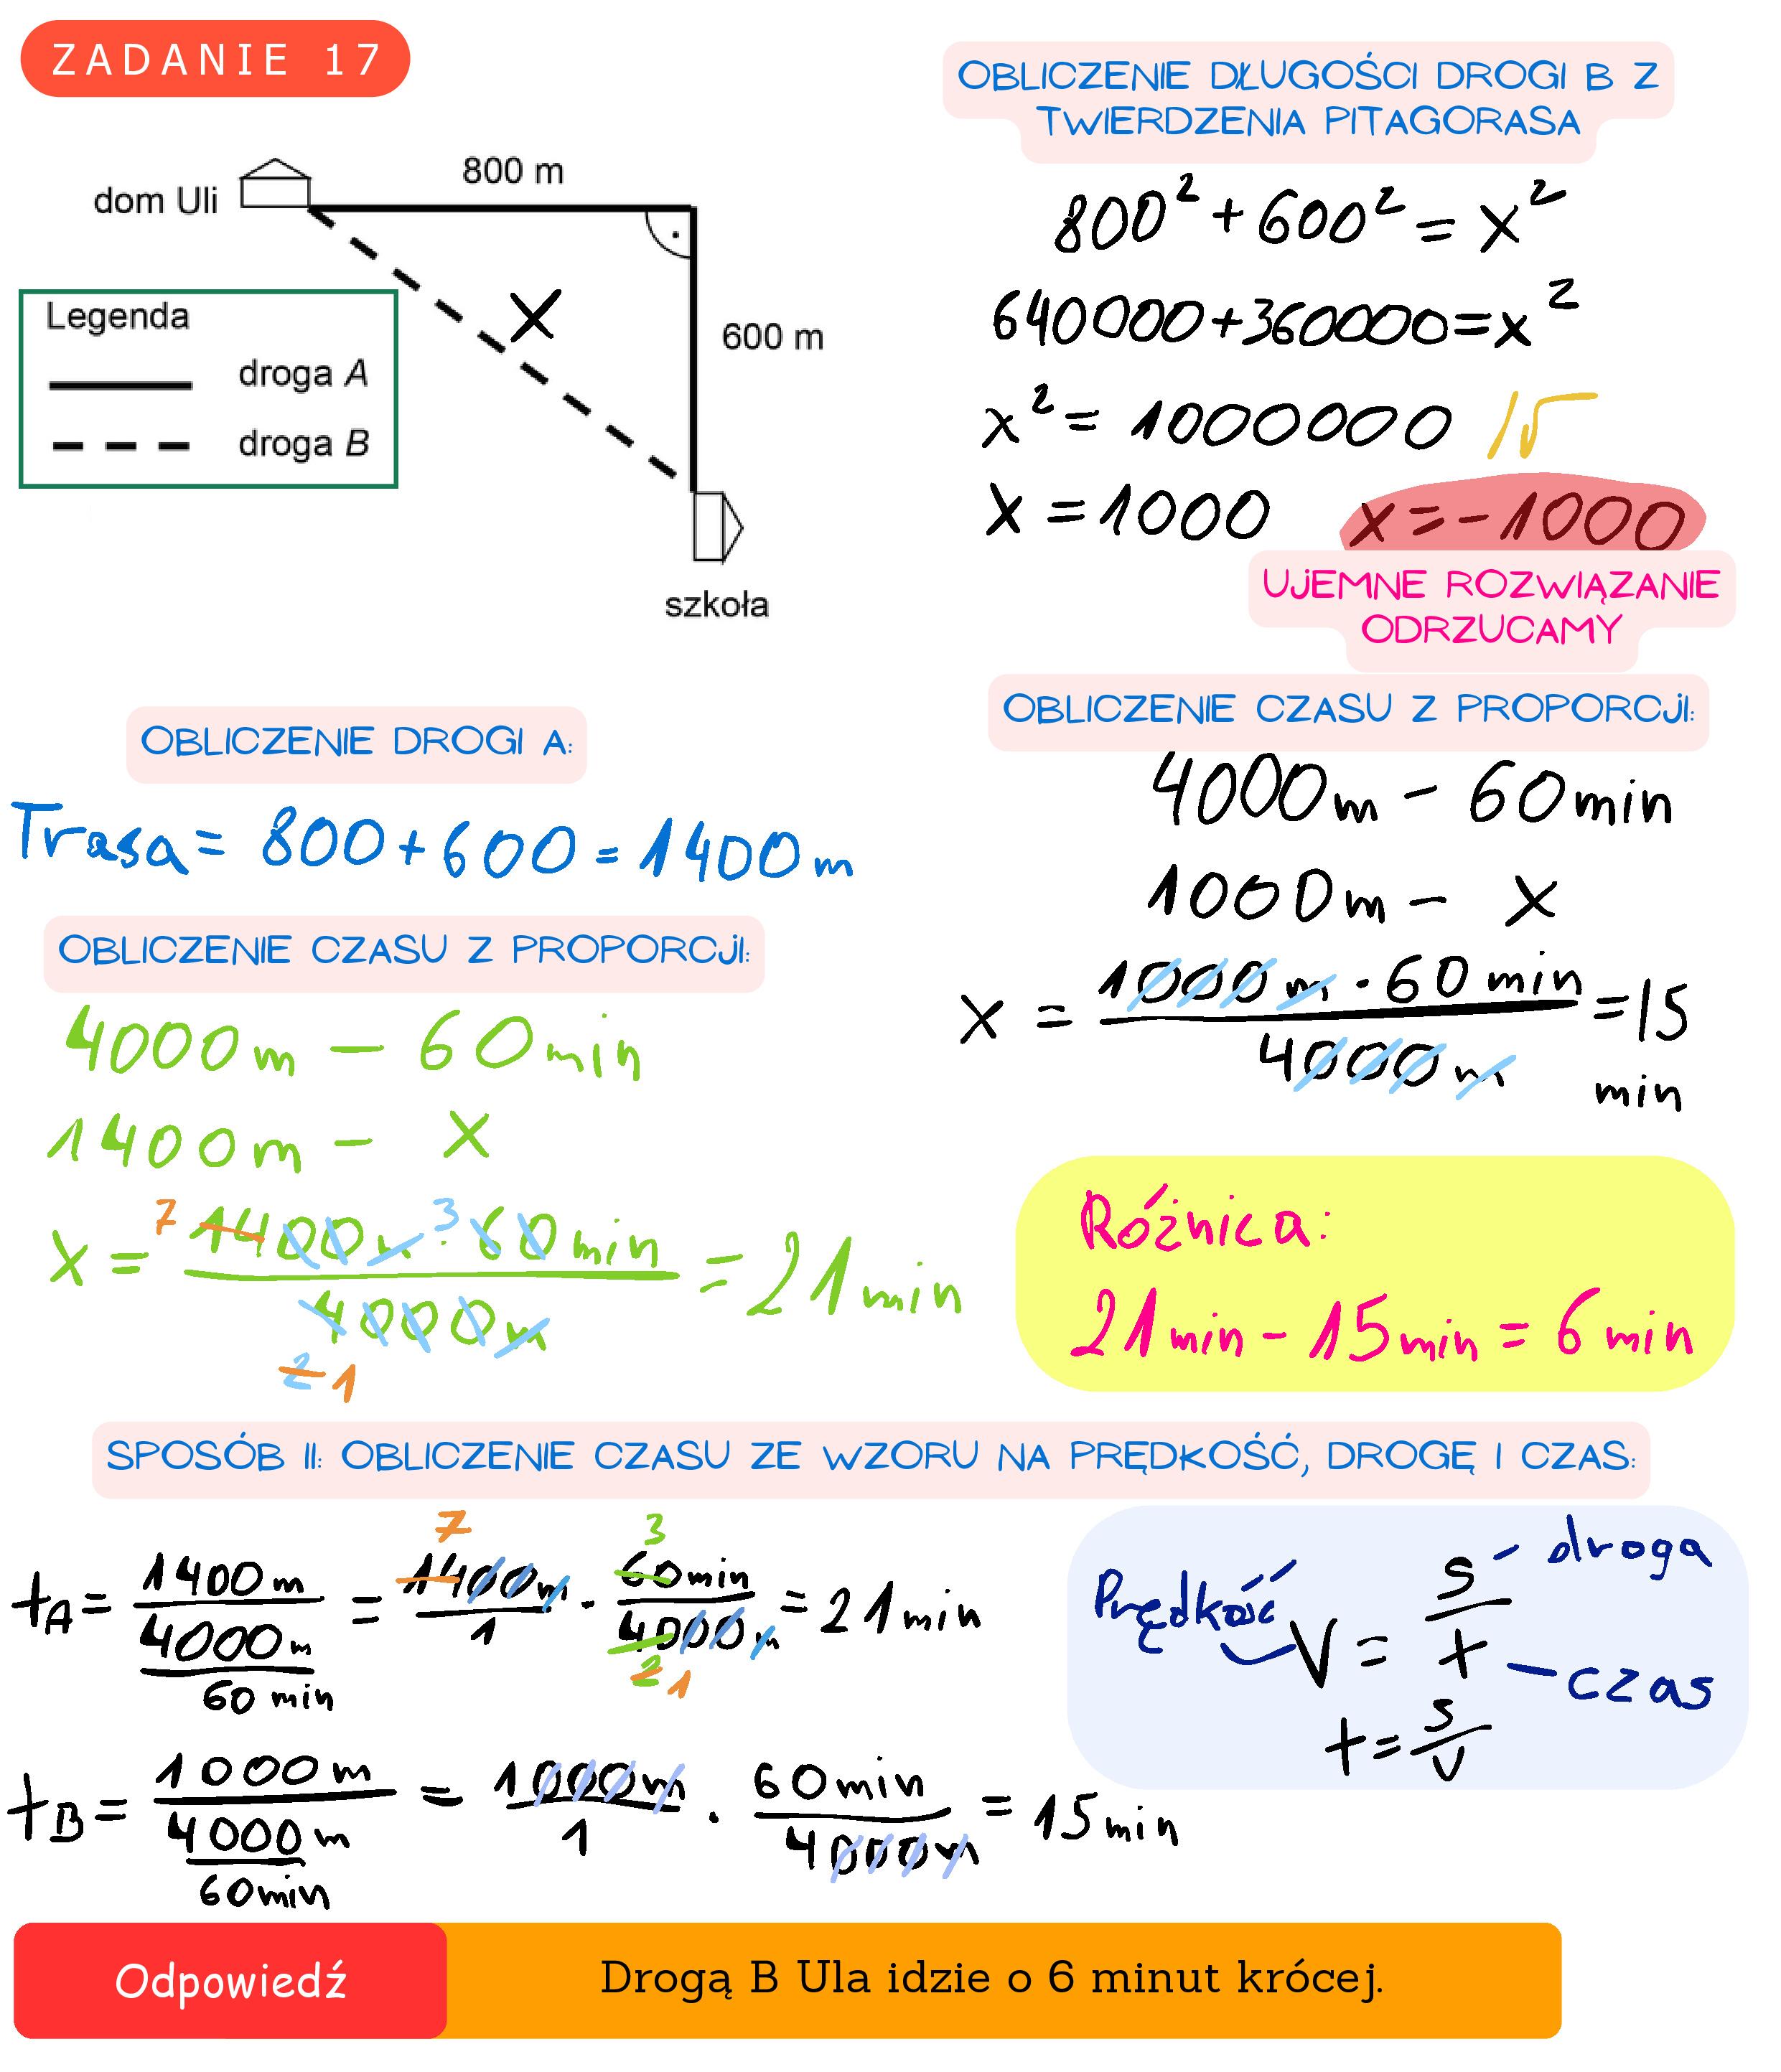 ZADANIE 17
800 m
dom Uli
X
600 m
Legenda
droga A
droga B
szkoła
OBLICZENIE DŁUGOŚCI DROGI B Z
TWIERDZENIA PITAGORASA
800² + 600² = x²
640000+360000=x²
x² = 1000000 /√
x = 1000 x = -1000
UJEMNE ROZWIĄZANIE
ODRZUCAMY
OBLICZENIE DROGI A:
Trasa = 800 + 600 = 1400 m
OBLICZENIE CZASU Z PROPORCJI:
4000 m – 60 min
1400 m – x
x = 1400 m · 60 min / 4000 m = 21 min
7 3
2 1
OBLICZENIE CZASU Z PROPORCJI:
4000 m – 60 min
1000 m – x
x = 1000 m · 60 min / 4000 m = 15
min
Różnica:
21 min – 15 min = 6 min
SPOSÓB II: OBLICZENIE CZASU ZE WZORU NA PRĘDKOŚĆ, DROGĘ I CZAS:
7 3
tA = 1400 m / 4000 m / 60 min = 1400 m / 1 · 60 min / 4000 m = 21 min
2 1
tB = 1000 m / 4000 m / 60 min = 1000 m / 1 · 60 min / 4000 m = 15 min
Prędkość V = s / t
– droga
– czas
t = s / V
Odpowiedź
Drogą B Ula idzie o 6 minut krócej.